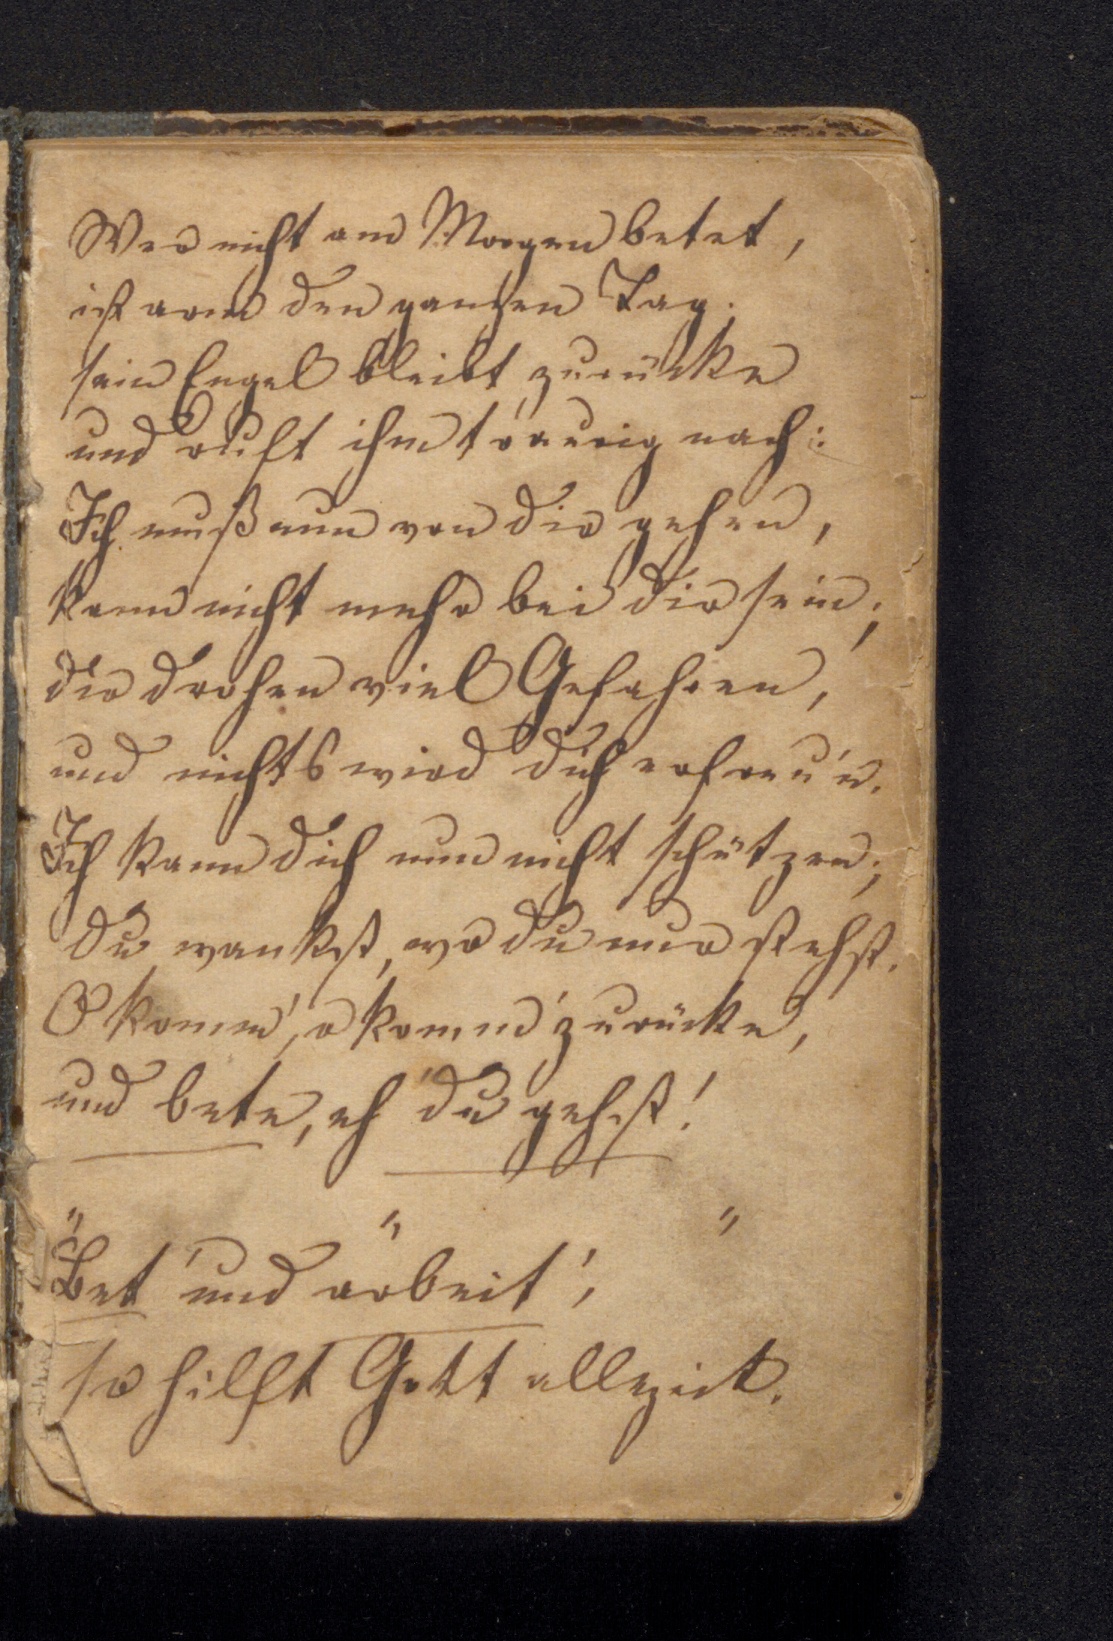 Wer nicht am Morgen betet,
ist arm den ganzen Tag.
sein Engel bleibt zurücke
und ruft ihm traurig nach:
Ich muß nun von dir gehen,
kann nicht mehr bei dir sein;
dir drohen viel Gefahren,
und nichts wird dich erfreu'n.
Ich kann dich nun nicht schützen;
du wankst, wo du nur stehst.
O komm', o komm' zurücke,
und bete, eh' du gehst!
" " "
Bet' und arbeit',
so hilft Gott allezeit.